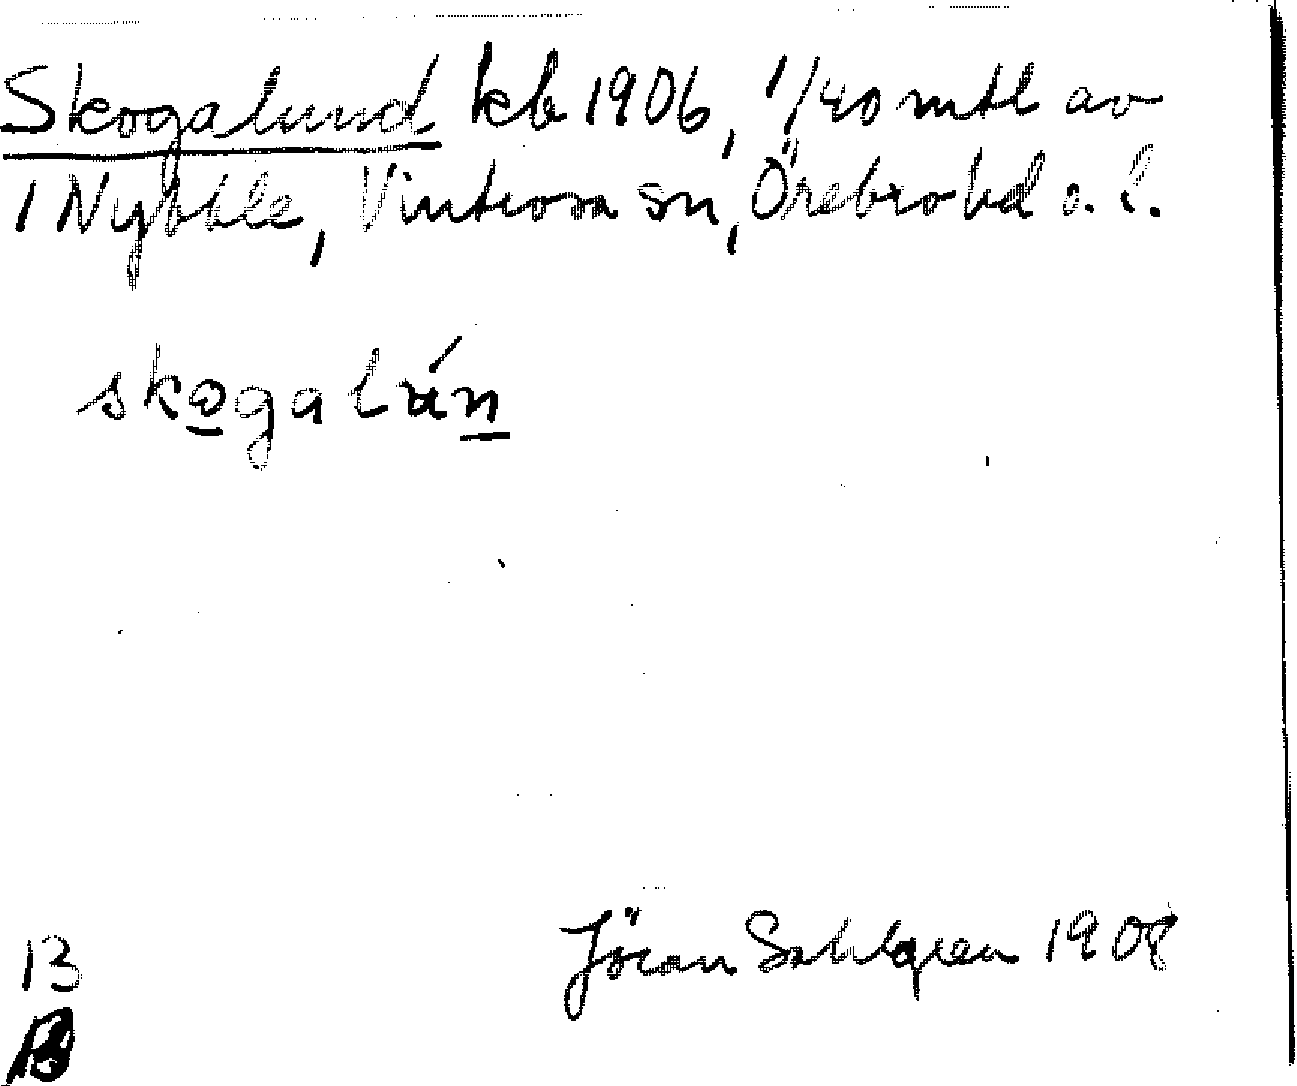 Skogalund kb 1906, 1/40 mtl av
1 Nybble, Vintrosa sn, Örebro hd o. l.
skogalún
Jöran Sahlgren 1908
13
B